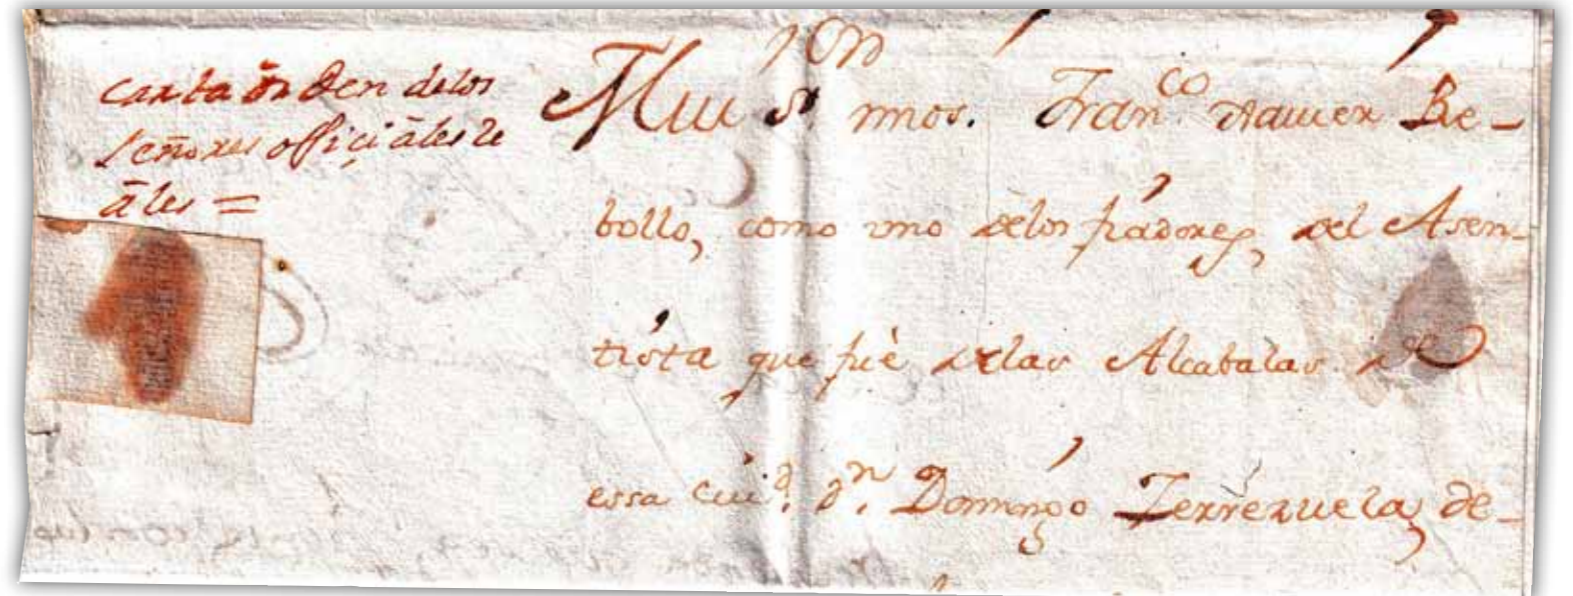 carta orden delos
señores officiāles Re
āles =
Mui Sr. mios. Franco. Xauier Re-
bollo, como vno delos fiadores, del Asen-
tista que fuè delas Alcabalas de
essa ciud. Dn. Domingo Zerrezuela, de-